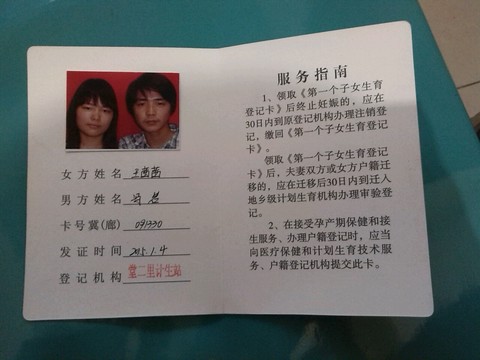 女方姓名 王茵茵
男方姓名
卡号冀(廊) 091330
发证时间 2015.1.4
登记机构 堂二里计生站
服务指南
1、领取《第一个子女生育
登记卡》后终止妊娠的，应在
30日内到原登记机构办理注销登
记，缴回《第一个子女生育登记
卡》。
领取《第一个子女生育登记
卡》后，夫妻双方或女方户籍迁
移的，应在迁移后30日内到迁入
地乡级计划生育机构办理审验登
记。
2、在接受孕产期保健和接
生服务、办理户籍登记时，应当
向医疗保健和计划生育技术服
务、户籍登记机构提交此卡。